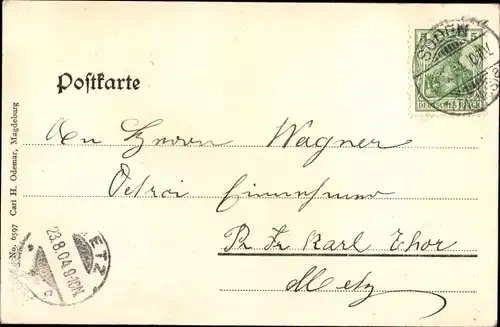 Postkarte
SODEN
5 5
DEUTSCHES REICH
An Herrn Wagner
Octroi Einnehmer
Pr. Fr. Karl Thor
Metz
METZ
23.8.04.9-10N.
c
No. 6597 Carl H. Odemar, Magdeburg